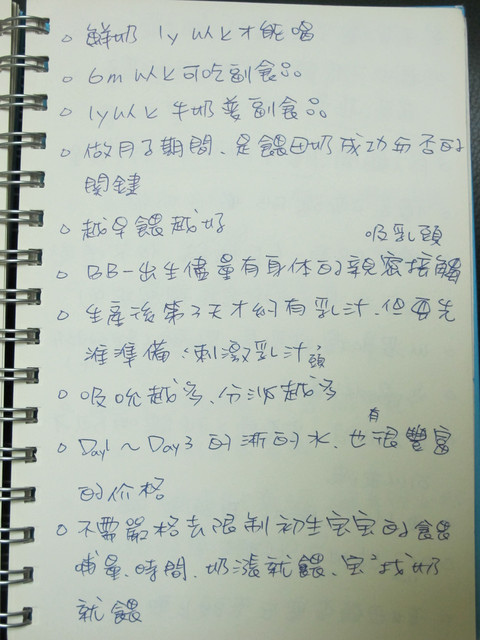 鮮奶 1y 以上才能喝
6m 以上可吃副食品
1y以上 牛奶 副食品
做月子期間、是餵母奶成功與否的
関鍵
越早餵越好
吸乳頭
BB一出生儘量有身体的親密接觸
生產後第3天才約有乳汁、但要先
准準備:刺激乳汁頭
吸吮越多、分泌越多
有
Day1~Day3 的 的水、也很豐富
的价格
不需嚴格去限制初生宝宝的餵
哺量、時間、奶漲就餵、宝²找奶
就餵